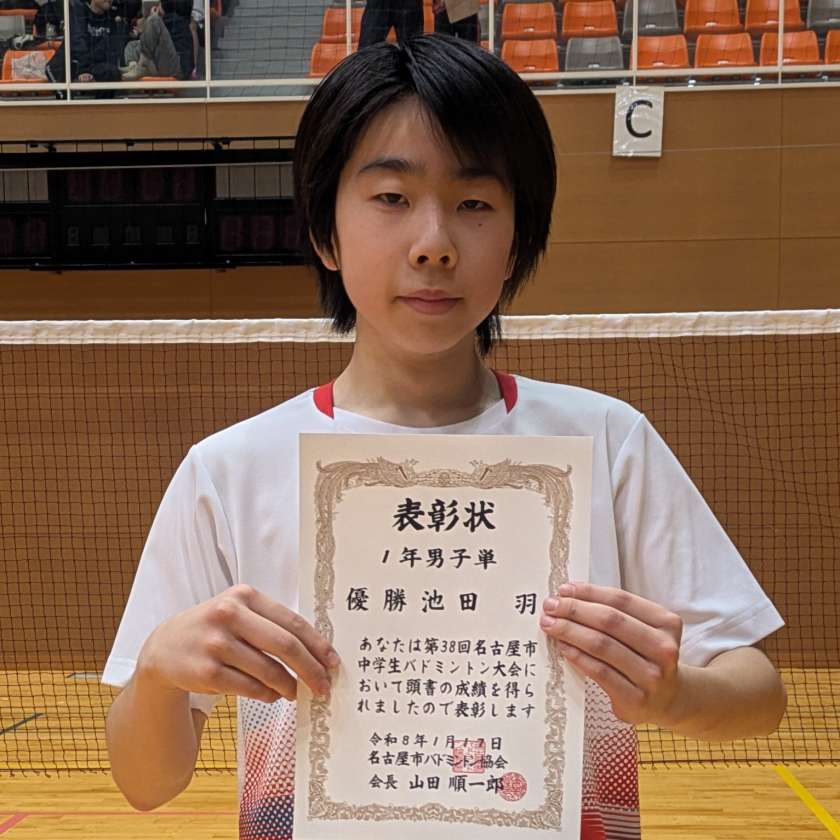 C
表彰状
1年男子単
優勝 池田 羽
あなたは第38回名古屋市
中学生バドミントン大会に
おいて頭書の成績を得ら
れましたので表彰します
令和8年1月17日
名古屋市バドミントン協会
会長 山田 順一郎